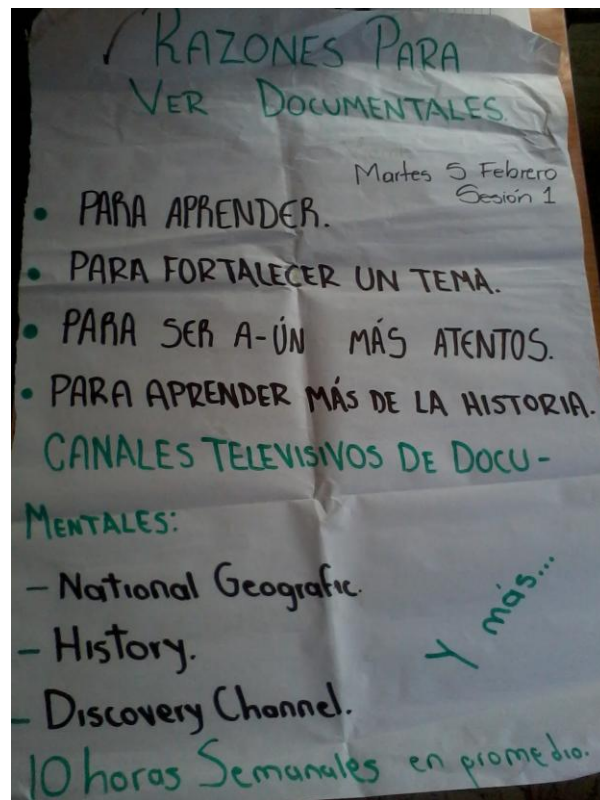 RAZONES PARA
VER DOCUMENTALES.
Martes 5 Febrero
Sesión 1
• PARA APRENDER.
• PARA FORTALECER UN TEMA.
• PARA SER A-ÚN MÁS ATENTOS.
• PARA APRENDER MÁS DE LA HISTORIA.
CANALES TELEVISIVOS DE DOCU-
MENTALES:
- National Geografic.
- History.
- Discovery Channel.
Y más...
10 horas Semanales en promedio.